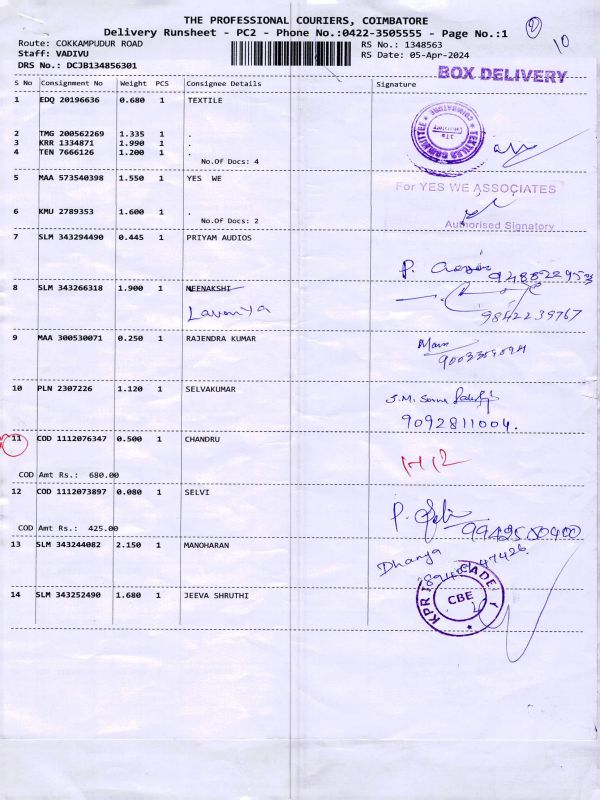 THE PROFESSIONAL COURIERS, COIMBATORE
Delivery Runsheet - PC2 - Phone No.:0422-3505555 - Page No.:1
2
10
Route: COKKAMPUDUR ROAD
RS No.: 1348563
Staff: VADIVU
RS Date: 05-Apr-2024
DRS No.: DCJB134856301
BOX DELIVERY
S No Consignment No Weight PCS Consignee Details Signature
1 EDQ 20196636 0.680 1 TEXTILE
TEXTILES COMMITTEE
COIMBATORE
2 TMG 200562269 1.335 1 .
3 KRR 1334871 1.990 1 .
4 TEN 7666126 1.200 1 .
No.Of Docs: 4
5 MAA 573540398 1.550 1 YES WE
For YES WE ASSOCIATES
6 KMU 2789353 1.600 1 .
No.Of Docs: 2
Authorised Signatory
7 SLM 343294490 0.445 1 PRIYAM AUDIOS
8 SLM 343266318 1.900 1 MEENAKSHI
Lavanya
9842239767
9 MAA 300530071 0.250 1 RAJENDRA KUMAR
10 PLN 2307226 1.120 1 SELVAKUMAR
9092811004.
11 COD 1112076347 0.500 1 CHANDRU
COD Amt Rs.: 680.00
12 COD 1112073897 0.080 1 SELVI
COD Amt Rs.: 425.00
13 SLM 343244082 2.150 1 MANOHARAN
Dhanya
14 SLM 343252490 1.680 1 JEEVA SHRUTHI
CBE